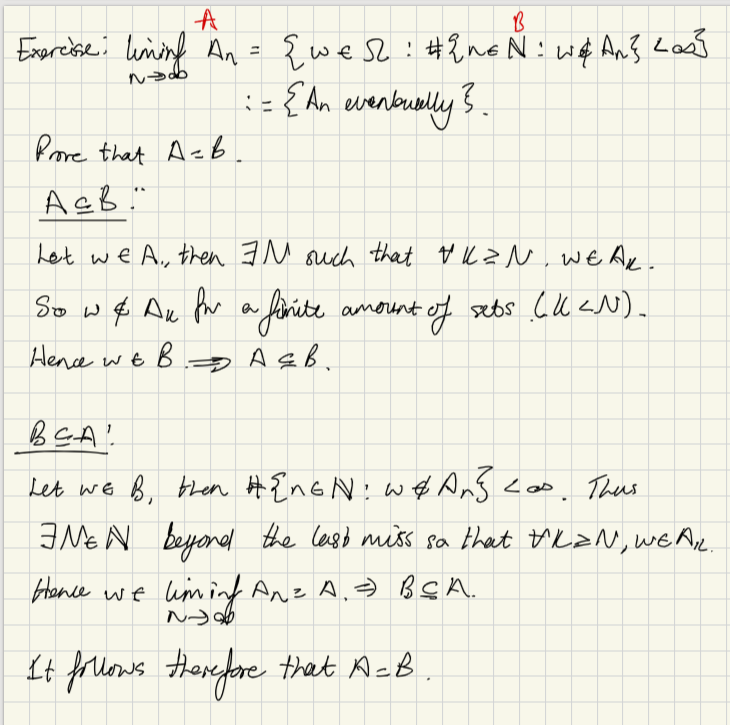 A B
Exercise: liminf Aₙ = {w ∈ Ω : #{n∈ℕ : w∉Aₙ} < ∞}
n→∞
:= {Aₙ eventually}.
Prove that A=B.
A⊆B:
Let w∈A, then ∃N such that ∀k≥N, w∈Aₖ.
So w∉Aₖ for a finite amount of sets (k<N).
Hence w∈B ⟹ A⊆B.
B⊆A:
Let w∈B, then #{n∈ℕ: w∉Aₙ} < ∞. Thus
∃N∈ℕ beyond the last miss so that ∀k≥N, w∈Aₖ.
Hence w∈ liminf Aₙ = A. ⇒ B⊆A.
n→∞
It follows therefore that A=B.